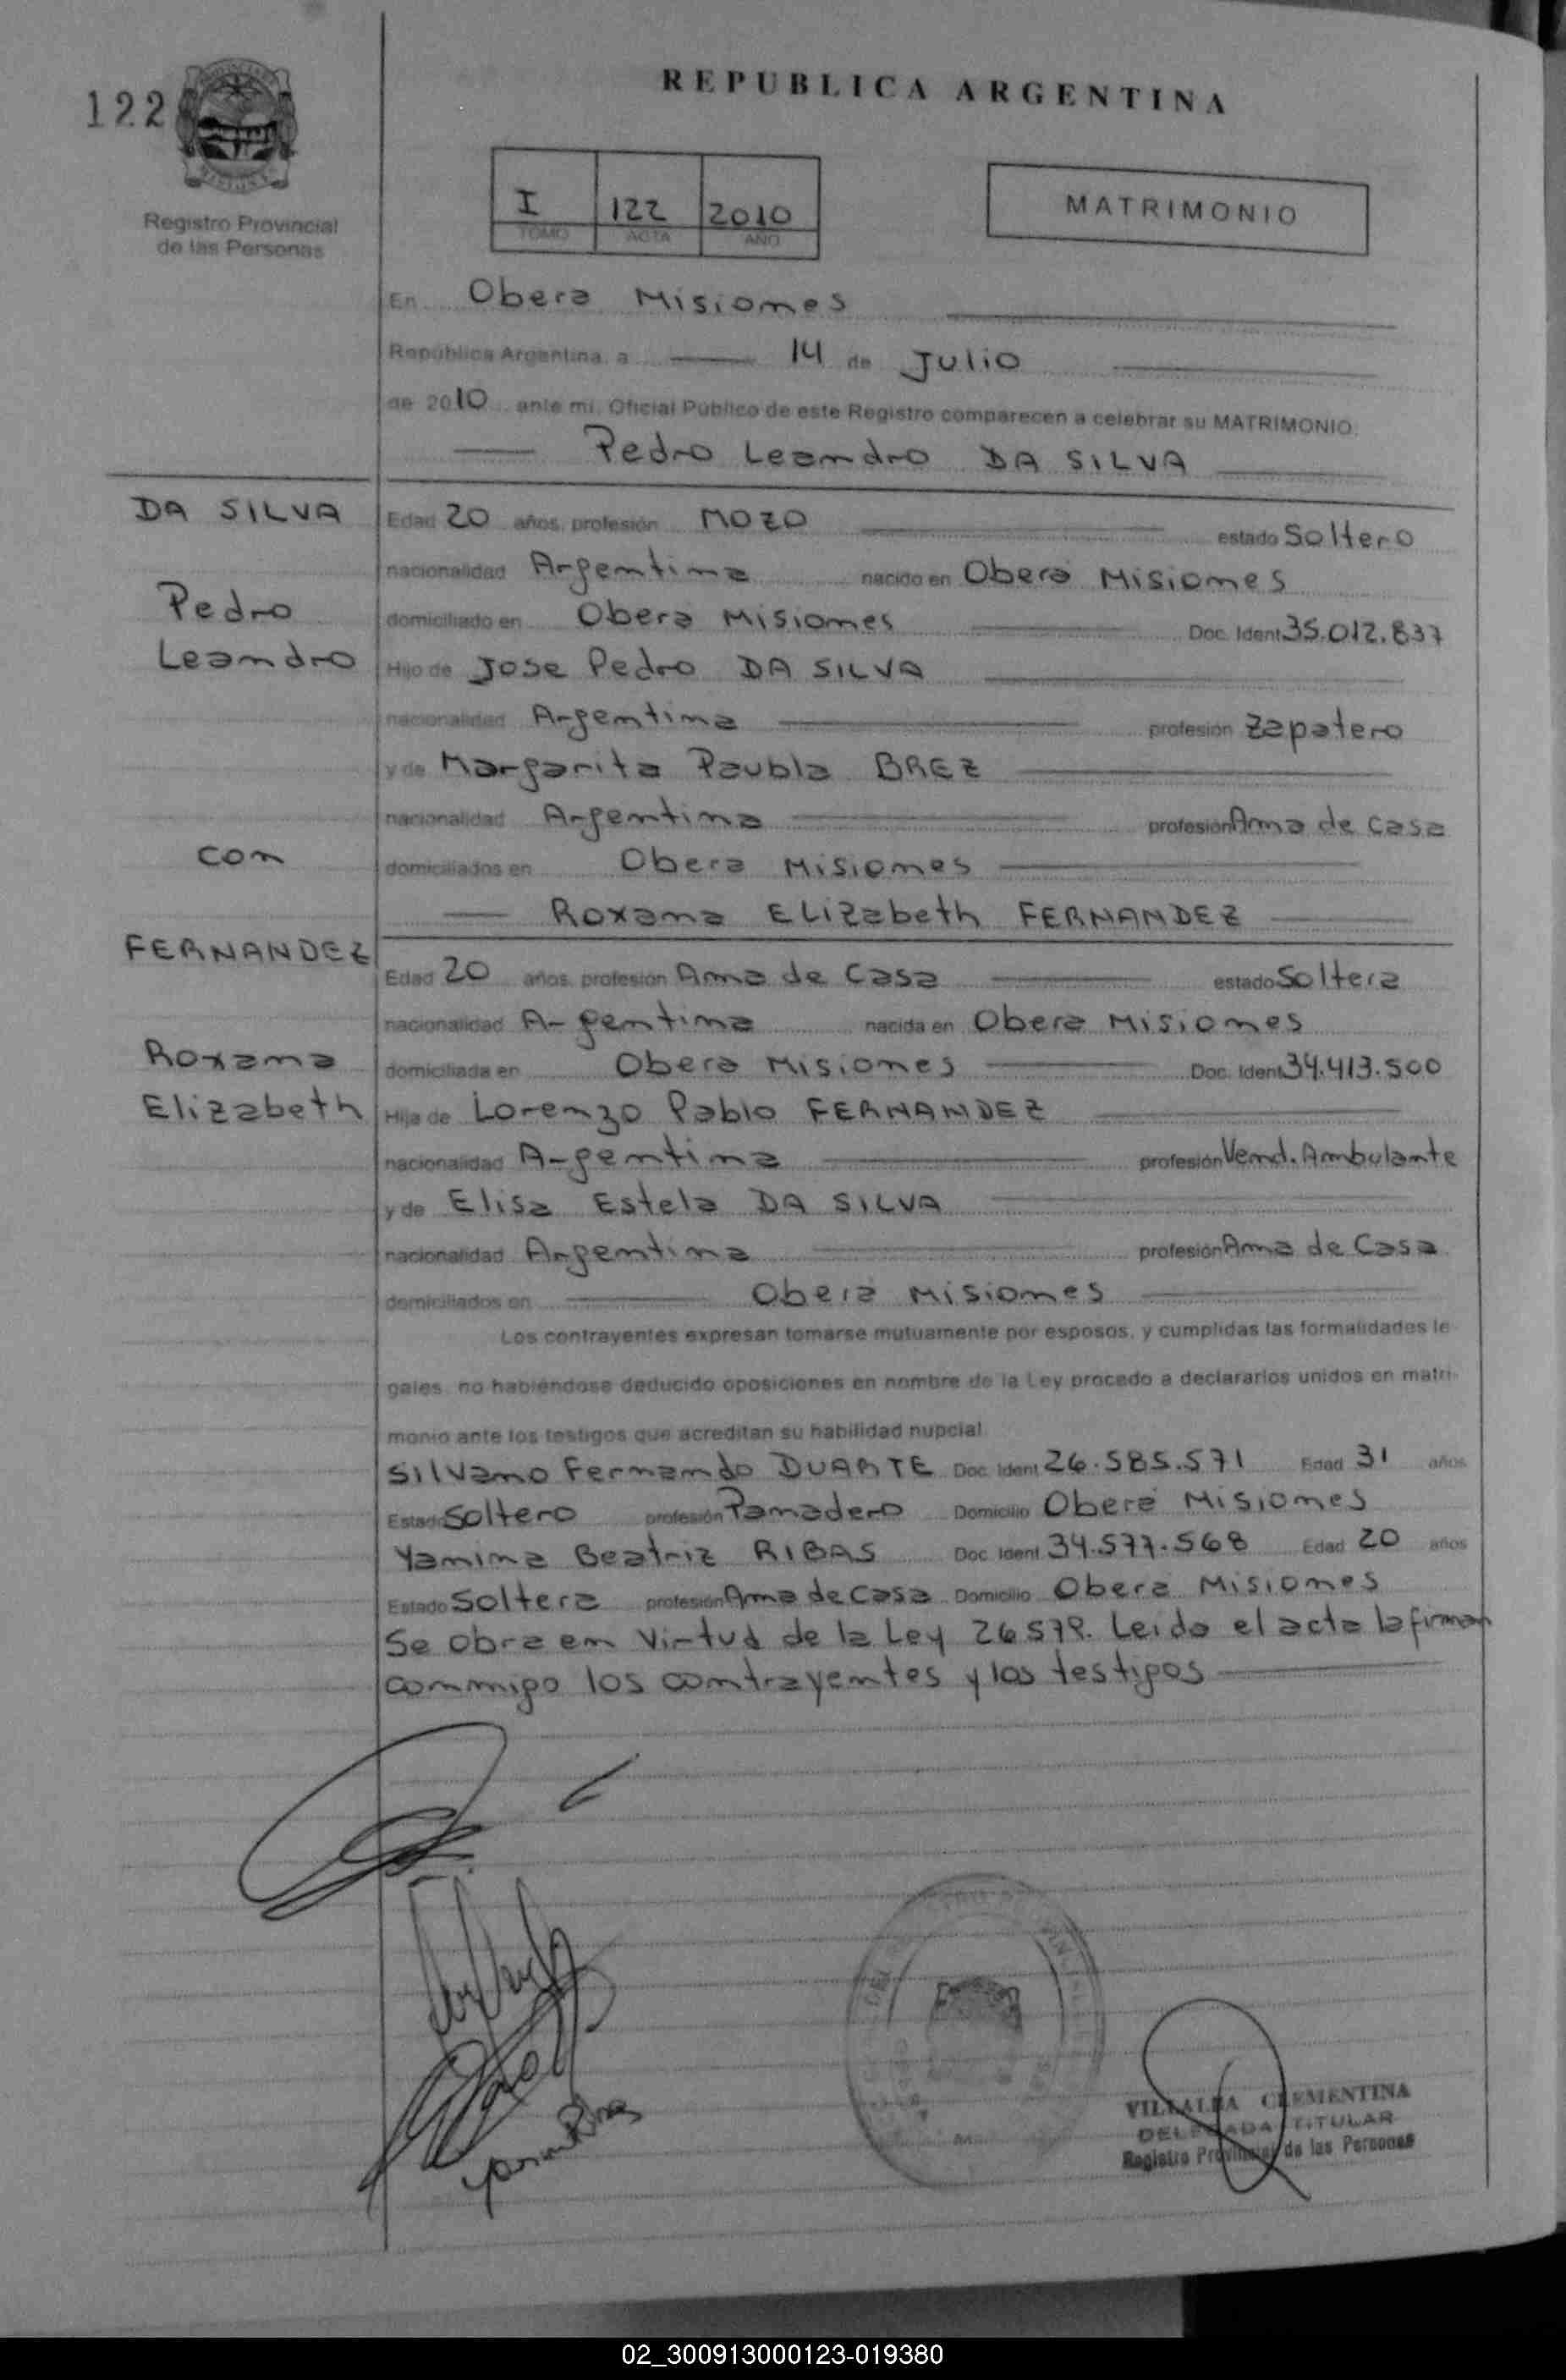 REPUBLICA ARGENTINA
122
Registro Provincial
de las Personas
I 122 2010
TOMO ACTA AÑO
MATRIMONIO
En Obera Misiones
República Argentina, a 14 de Julio
de 2010 ante mí, Oficial Público de este Registro comparecen a celebrar su MATRIMONIO
Pedro Leandro DA SILVA
DA SILVA
Edad 20 años, profesión MOZO estado Soltero
nacionalidad Argentina nacido en Obera Misiones
Pedro
domiciliado en Obera Misiones Doc. Ident 35.012.837
Leandro
Hijo de Jose Pedro DA SILVA
nacionalidad Argentina profesión Zapatero
y de Margarita Paubla BREZ
nacionalidad Argentina profesión Ama de Casa
con
domiciliados en Obera Misiones
Roxana ELizabeth FERNANDEZ
FERNANDEZ
Edad 20 años, profesión Ama de Casa estado Soltera
nacionalidad Argentina nacida en Obera Misiones
Roxana
domiciliada en Obera Misiones Doc. Ident 34.413.500
Elizabeth
Hija de Lorenzo Pablo FERNANDEZ
nacionalidad Argentina profesión Vend. Ambulante
y de Elisa Estela DA SILVA
nacionalidad Argentina profesión Ama de Casa
domiciliados en Obera Misiones
Los contrayentes expresan tomarse mutuamente por esposos, y cumplidas las formalidades le-
gales, no habiéndose deducido oposiciones en nombre de la Ley procedo a declararlos unidos en matri-
monio ante los testigos que acreditan su habilidad nupcial
Silvano Fernando DUARTE Doc. Ident 26.585.571 Edad 31 años
Estado Soltero profesión Panadero Domicilio Obera Misiones
Yanina Beatriz RIBAS Doc. Ident 34.577.568 Edad 20 años
Estado Soltera profesión Ama de Casa Domicilio Obera Misiones
Se obra en Virtud de la Ley 26579. Leida el acta la firman
conmigo los contrayentes y los testigos
VILLALBA CLEMENTINA
DELEGADA TITULAR
Registro Provincial de las Personas
02_300913000123-019380